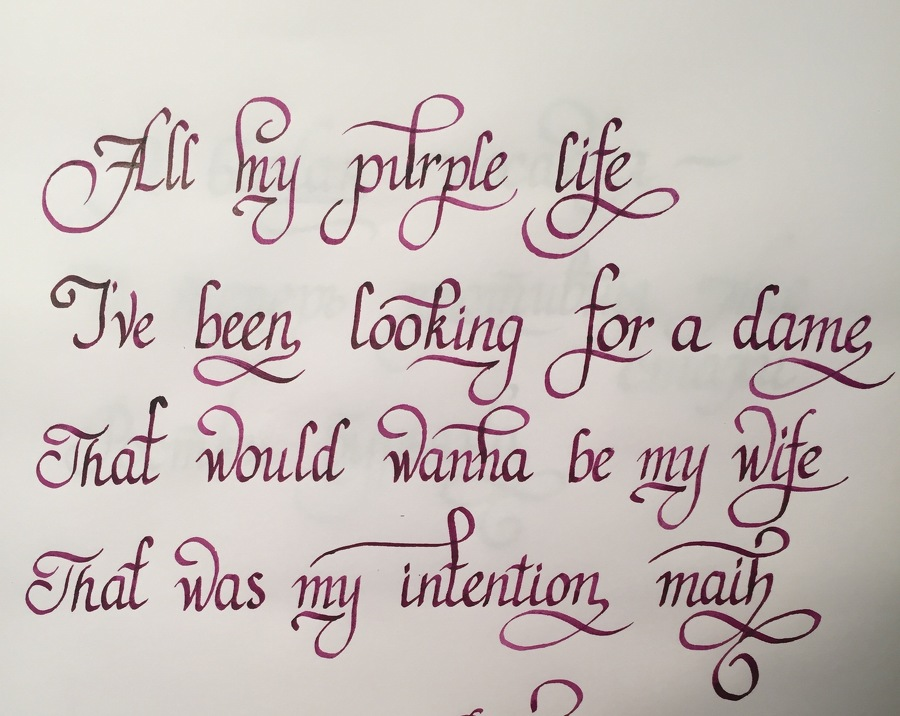 All my purple life
I've been looking for a dame
That would wanna be my wife
That was my intention, main